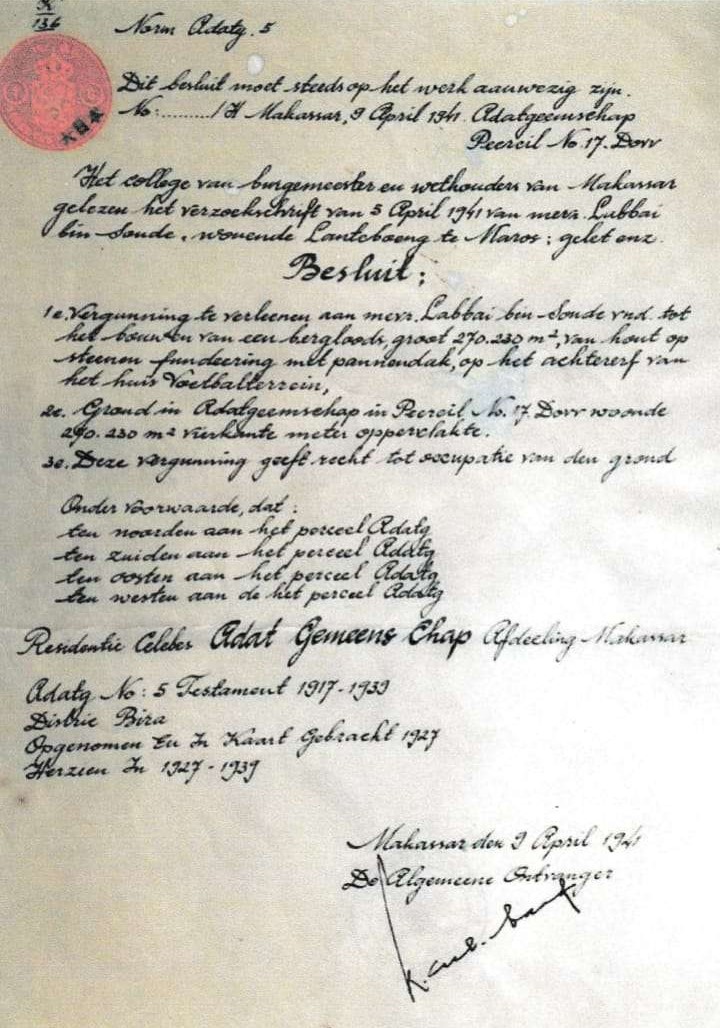 R
136
Norm Adatg. 5
大日本
Dit besluit moet steeds op het werk aanwezig zijn.
No:........./H Makassar, 9 April 1941. Adatgeemschap
Peerceil No. 17. Dorr
Het college van burgemeester en wethouders van Makassar
gelezen het verzoekschrift van 5 April 1941 van merk. Labbai
bin Soude. wouende Lanteboeng te Maros; gelet enz.
Besluit:
1e. Vergunning te verleenen aan mers. Labbai bin Soude vnd. tot
het bouwen van een bergloods, groot 270.230 m², van hout op
steenen fundeering met pannendak, op het achtererf van
het huis Voetbalterrein,
2e. Groud in Adatgeemschap in Peerceil No. 17. Dorr woonde
290.230 m² vierkante meter oppervlakte.
3e. Deze vergunning geeft recht tot occupatie van den grond
Onder voorwaarde, dat:
ten noorden aan het perceel Adatg
ten zuiden aan het perceel Adatg
ten oosten aan het perceel Adatg
ten westen aan de het perceel Adatg
Residentie Celebes Adat Gemeens Chap Afdeeling Makassar
Adatg No: 5 Testament 1917-1939
Distric Bira
Opgenomen En In Kaart Gebracht 1927
Herzien In 1927-1939
Makassar den 9 April 1941
De Algemeene Ontvanger